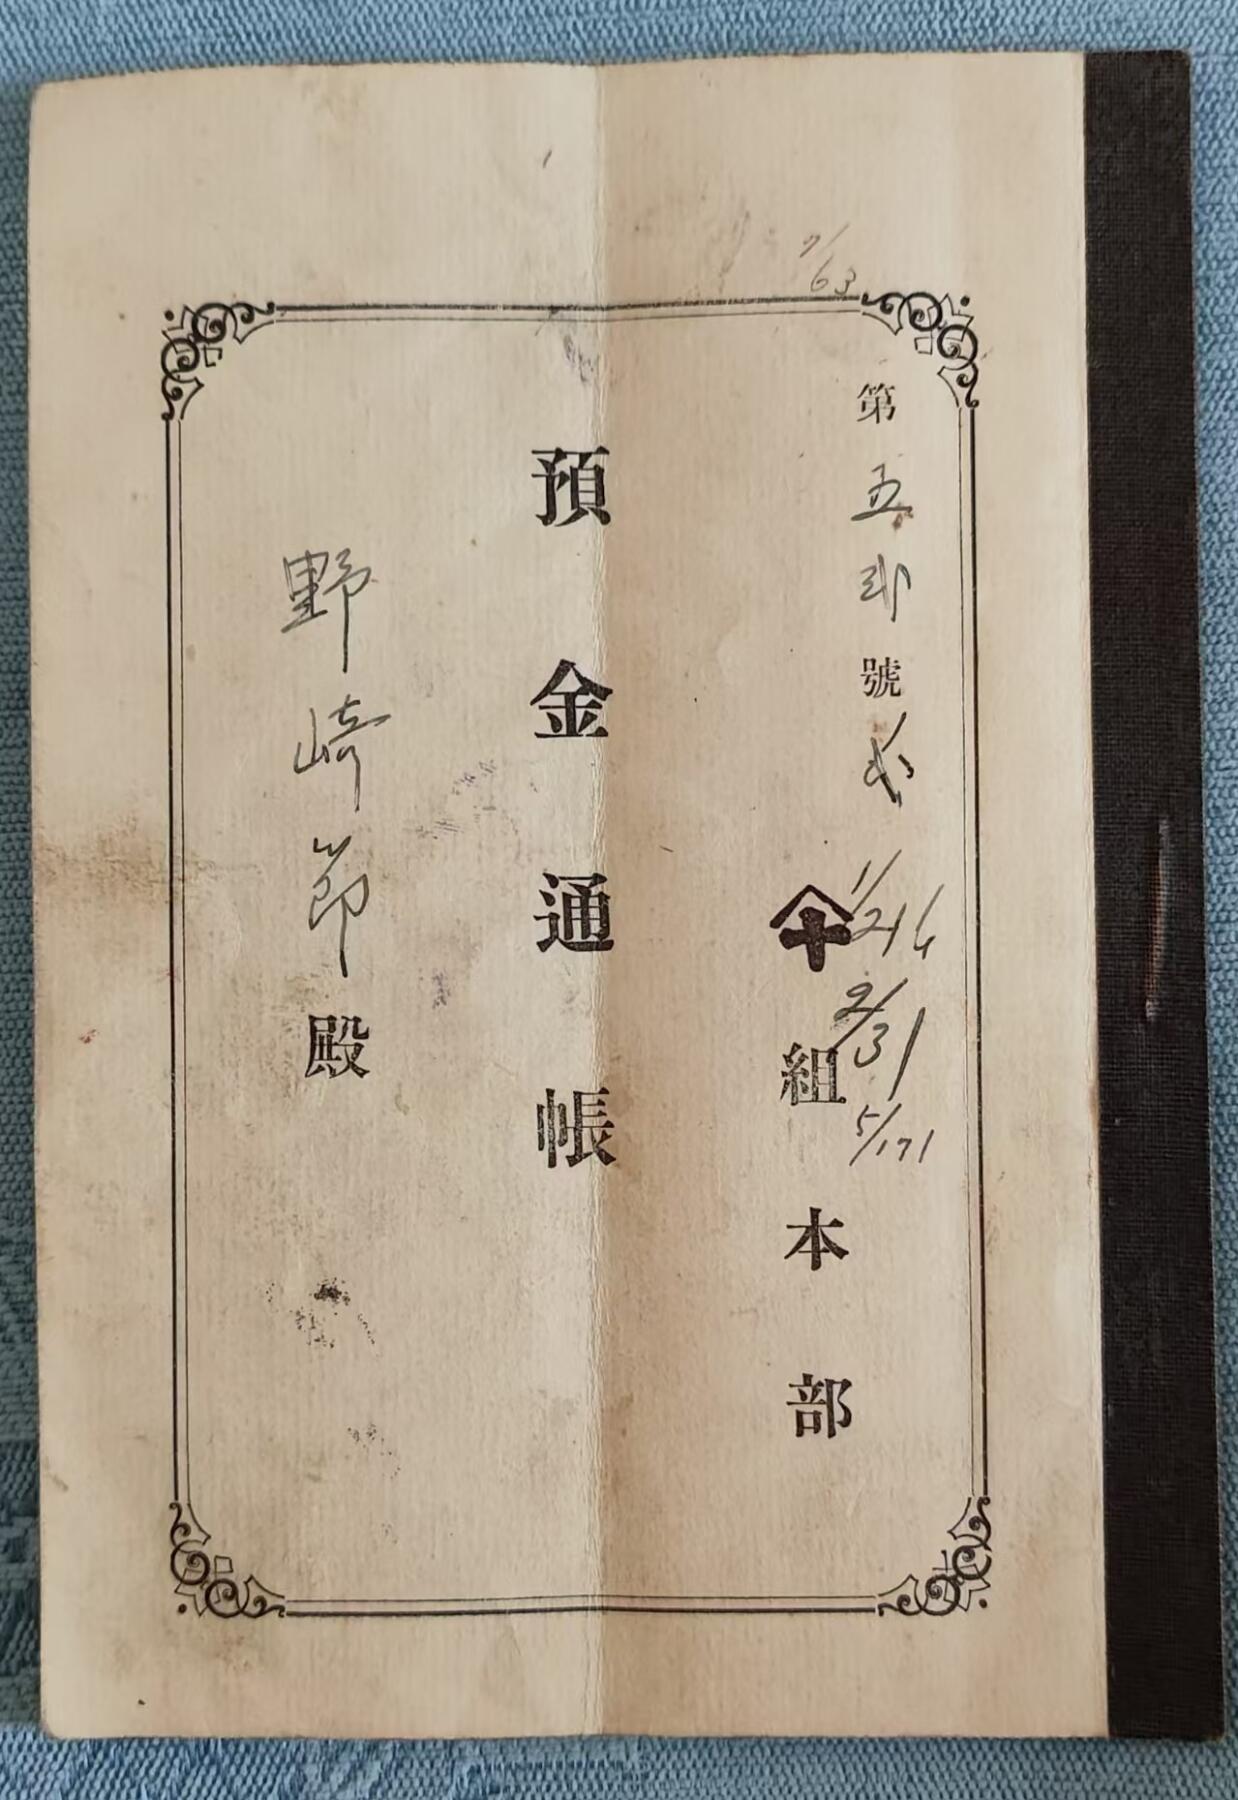 7/63
第五弐號弐
1/216
2/31
5/171
組本部
預金通帳
野崎節殿